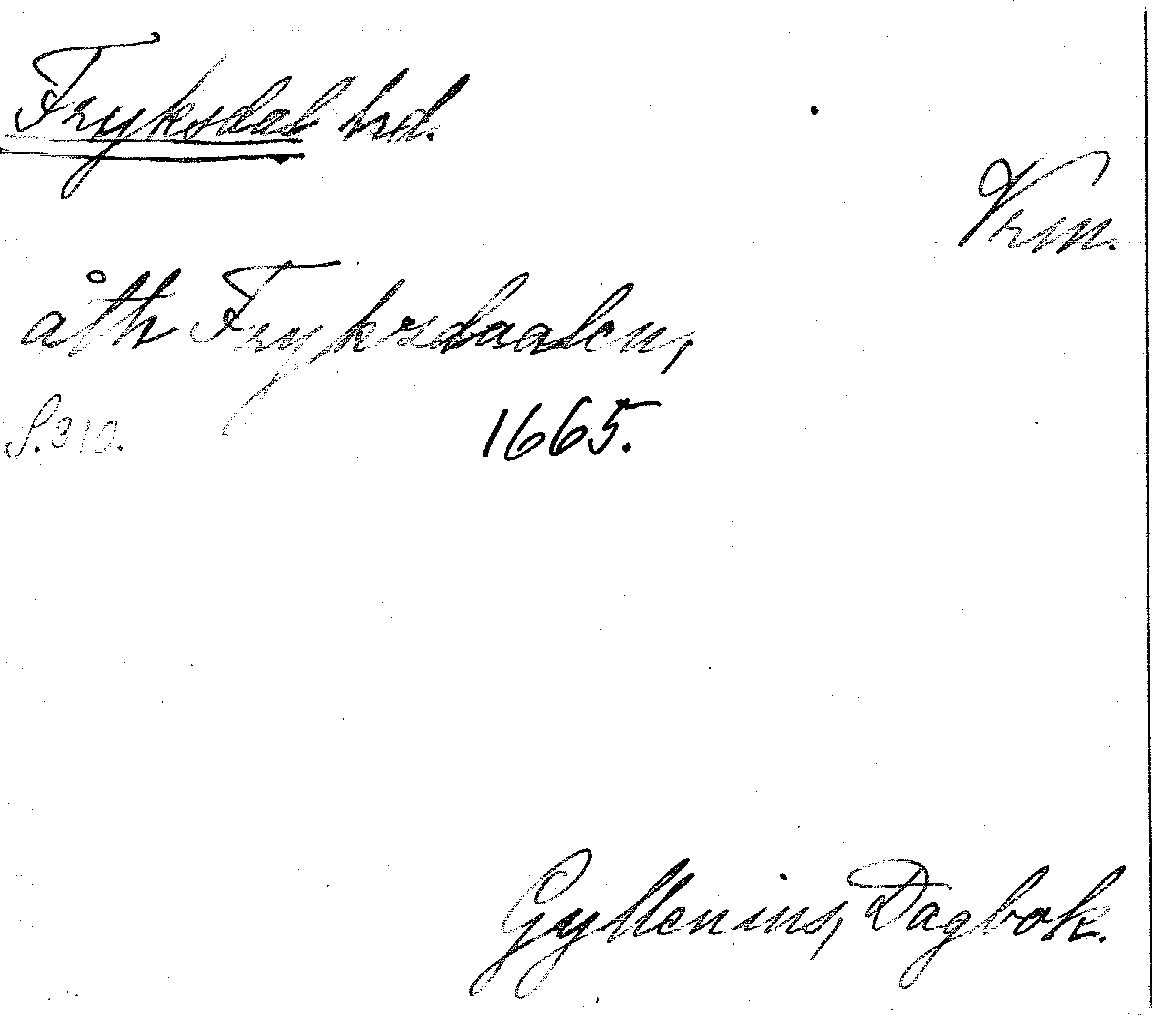 Fryksdal hrd.
Vrm.
åth Fryksdaalen,
S. 310. 1665.
Gyllenius, Dagbok.